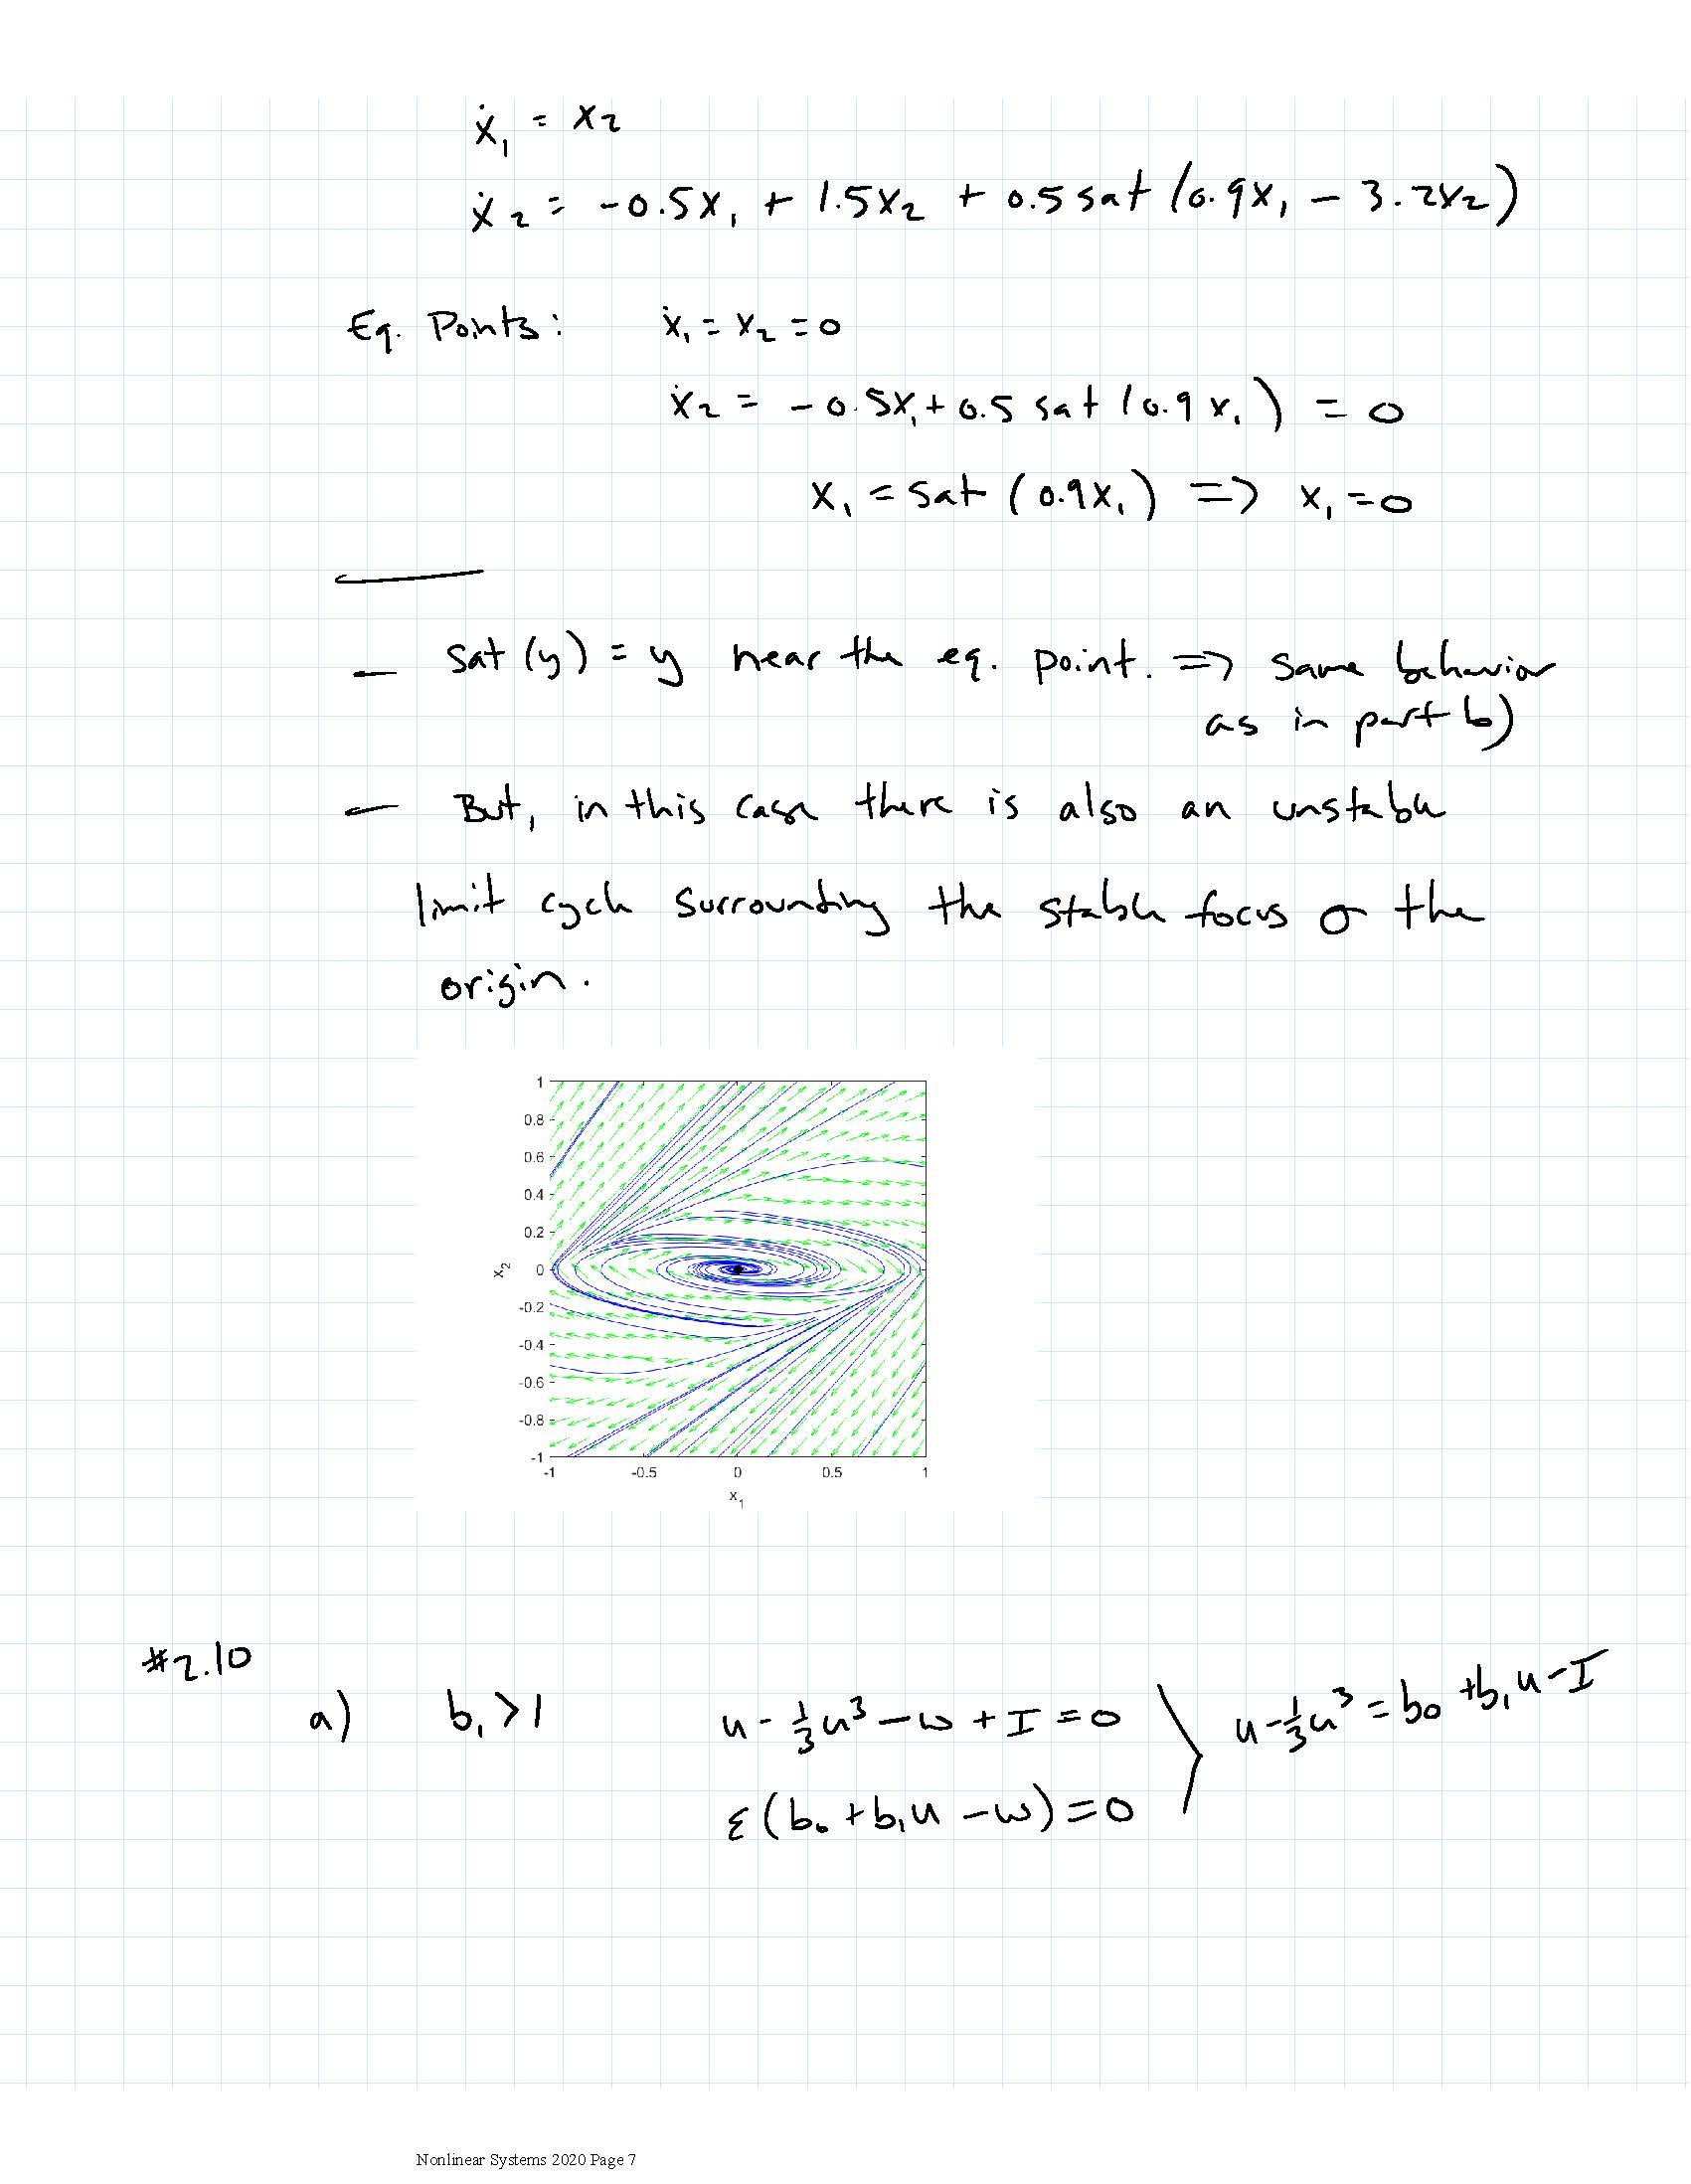 ẋ₁ = x₂
ẋ₂ = -0.5x₁ + 1.5x₂ + 0.5 sat (0.9x₁ - 3.2x₂)
Eq. Points: ẋ₁ = x₂ = 0
ẋ₂ = -0.5x₁ + 0.5 sat (0.9x₁) = 0
x₁ = sat (0.9x₁) => x₁ = 0
- sat (y) = y near the eq. point. => same behavior
as in part b)
- But, in this case there is also an unstable
limit cycle surrounding the stable focus @ the
origin.
1
0.8
0.6
0.4
0.2
0
-0.2
-0.4
-0.6
-0.8
-1
x₂
-1 -0.5 0 0.5 1
x₁
#2.10
a) b₁ > 1 u - ⅓u³ - w + I = 0 u - ⅓u³ = b₀ + b₁u - I
ε(b₀ + b₁u - w) = 0
Nonlinear Systems 2020 Page 7